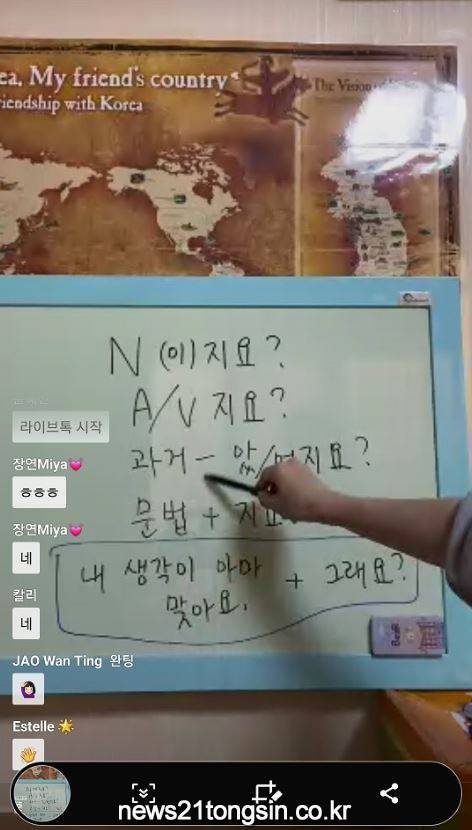 ea, My friend's country
riendship with Korea
The Vision of
N (이)지요?
A/V 지요?
과거 - 았/었지요?
문법 + 지요
내 생각이 아마 + 그래요?
맞아요.
라이브톡 시작
장연Miya💓
ㅎㅎㅎ
장연Miya💓
네
칼리
네
JAO Wan Ting 완팅
🙋🏻‍♀️
Estelle 🌟
👋
news21tongsin.co.kr